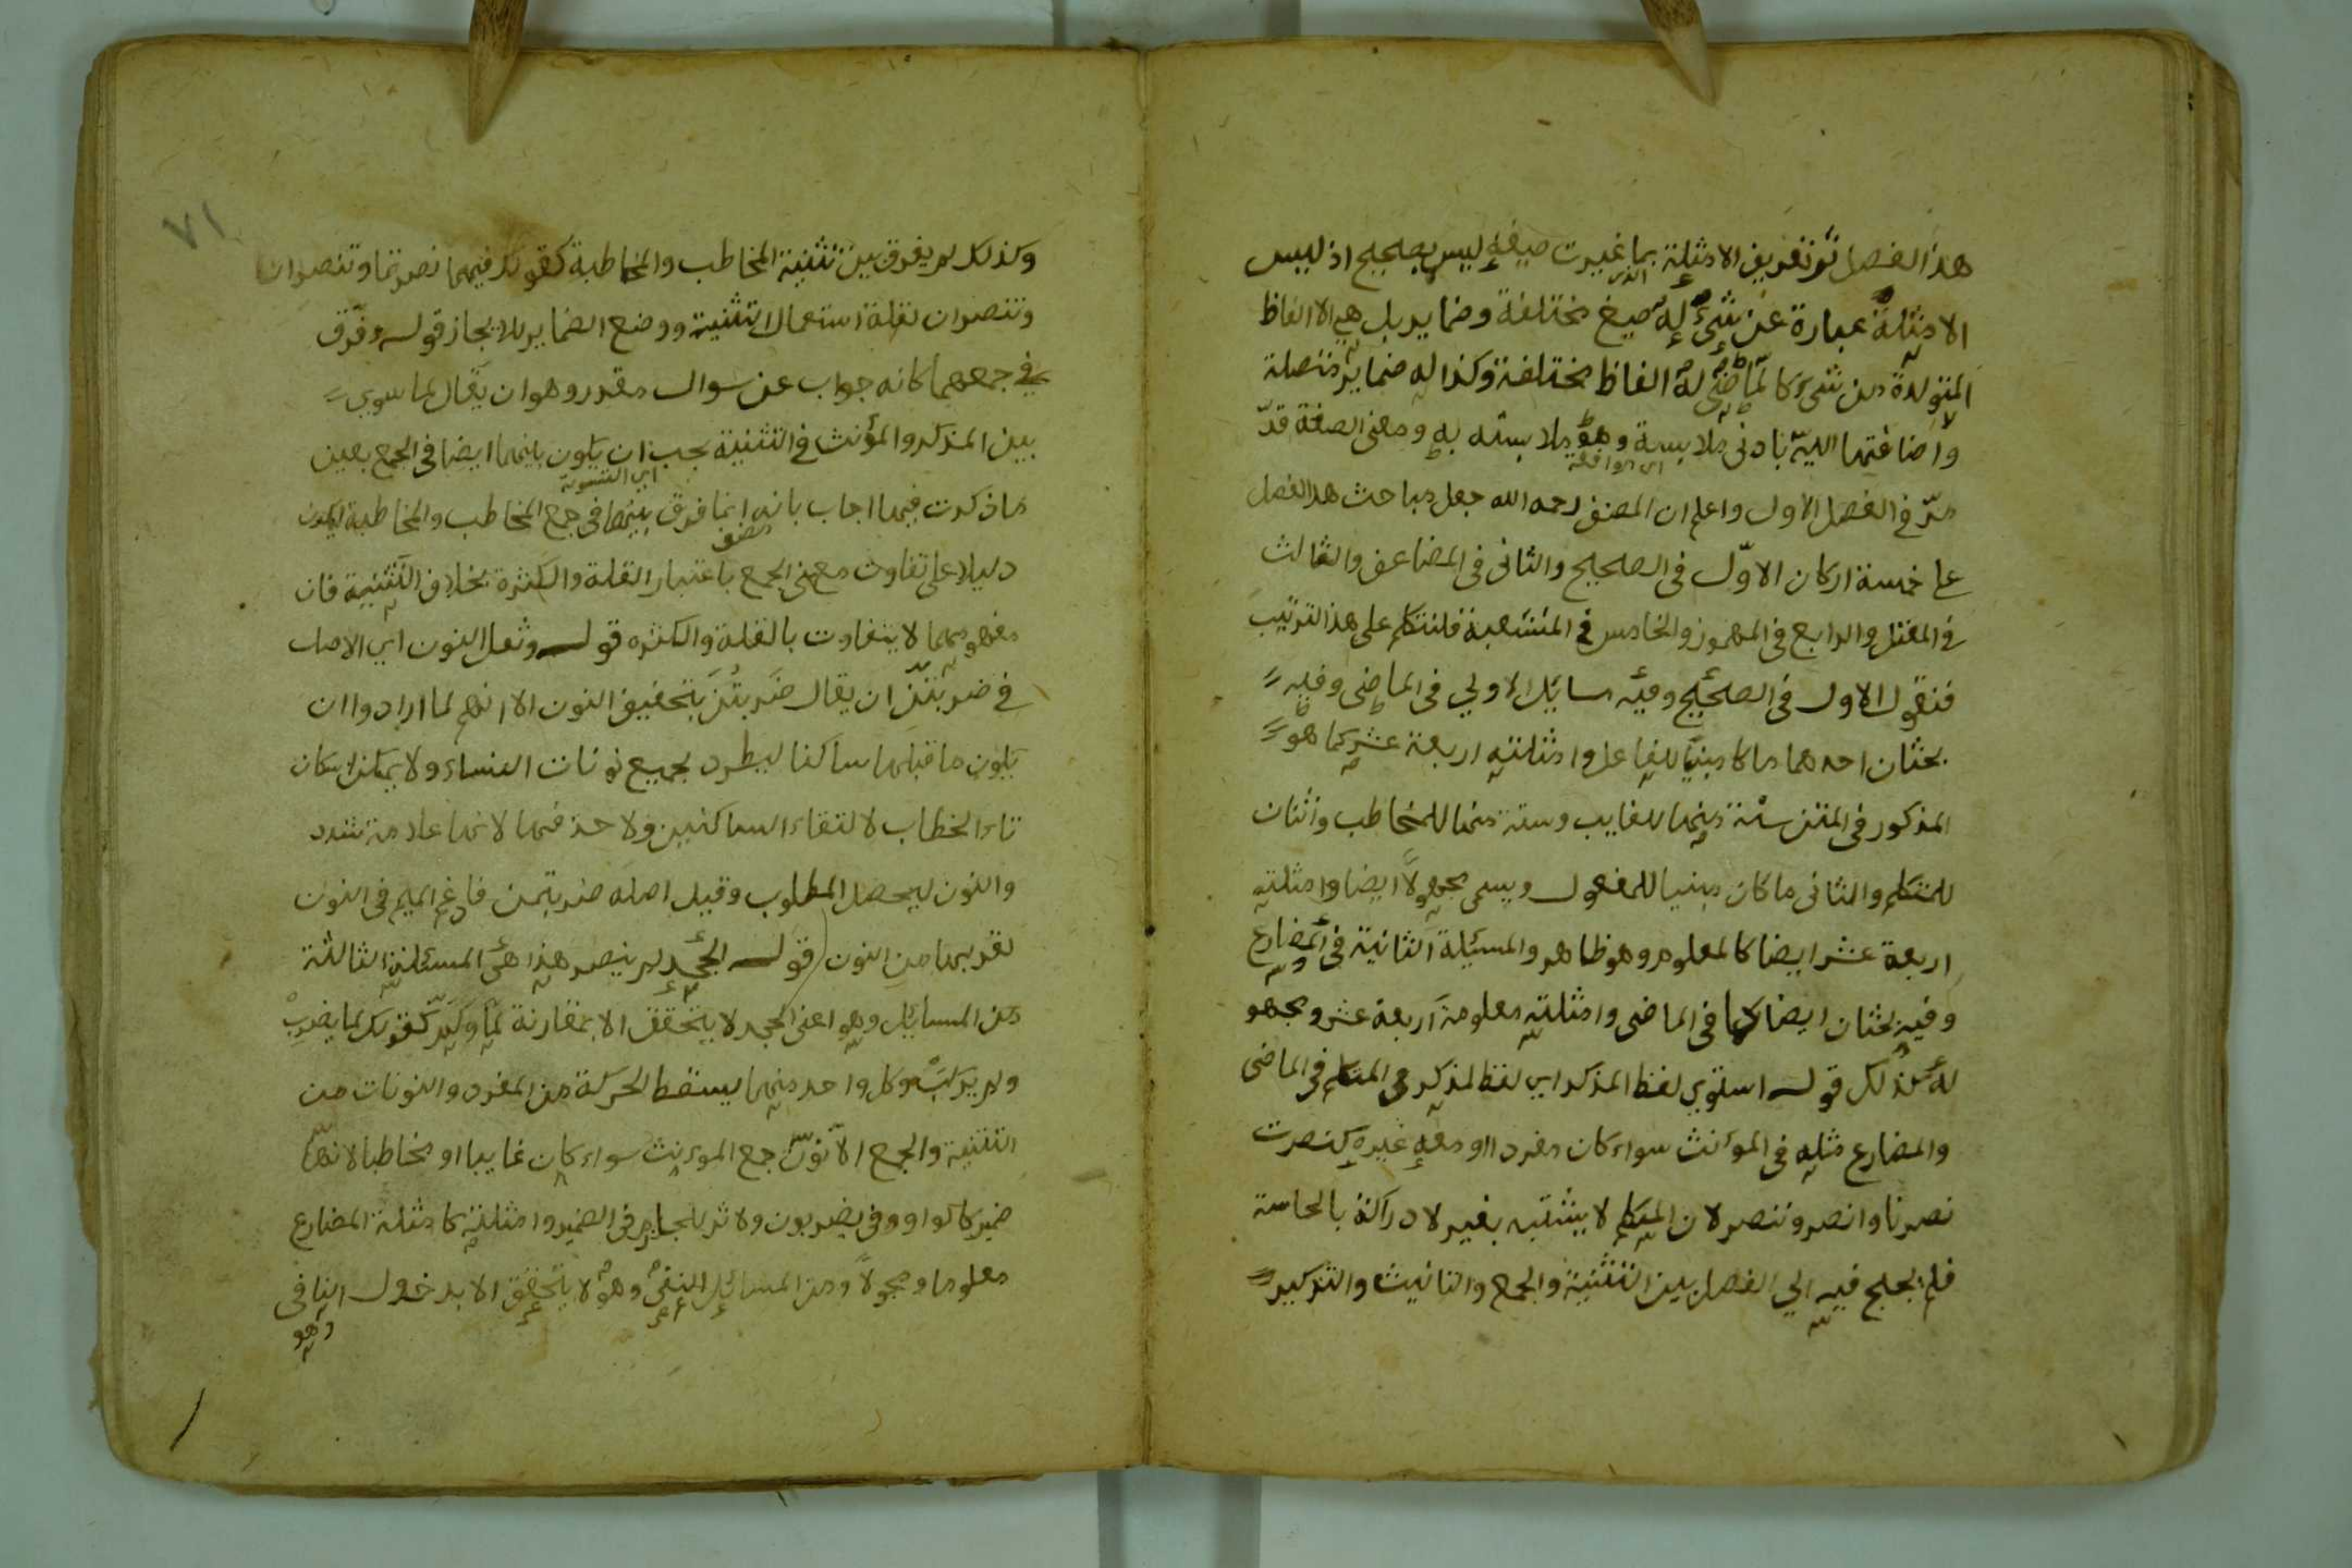 هذا الفصل ثو تعريف الامثلة بما غيرت صيغه ليس بصحيح اذ ليس
الامثلة عبارة عن شيء له صيغ مختلفة وضماير بل هي الالفاظ
المتولدة من شيء كالماضي له الفاظ مختلفة وكذا له ضماير متصلة
واضافتها اليه بادنى ملابسة وهو ملابسته به ومعنى الصفة قد
اي موافقة
مرّ في الفصل الاول واعلم ان المصنف رحمه الله جعل مباحث هذا الفصل
على خمسة اركان الاوّل في الصحيح والثاني في المضاعف والثالث
في المعتل والرابع في المهموز والخامس في المنشعبة فلنتكلم على هذا الترتيب
فنقول الاول في الصحيح وفيه مسائل الاولي في الماضي وفيه
بحثان احدهما ما كا مبنيا للفاعل وامثلته اربعة عشر كما هو
المذكور في المتن ستة منها للغايب وستة منها للمخاطب واثنان
للمتكلم والثاني ما كان مبنيا للمفعول ويسمى مجهولاً ايضا وامثلته
اربعة عشر ايضا كالمعلوم وهو ظاهر والمسئلة الثانية في المضارع
وفيه بحثان ايضا كما في الماضي وامثلته معلومة اربعة عشر ومجهو
له كذلك قوله استوي لفظ المذكر اي لفظ المذكر في المتكلم في الماضي
والمضارع مثله في المؤنث سواء كان مفردا او معه غيره كنصرت
نصرنا وانصر وننصر لان المتكلم لا يشتبه بغير لادراكة بالحاسة
فلم يحتج فيه الي الفصل بين التثنية والجمع والتانيث والتذكير
٧١
وكذلك لم يفرق بين تثنية المخاطب والمخاطبة كقولك فيهما نصرتما وتنصران
وتنصران لقلة استعمال التثنية ووضع الضماير للايجاز قوله وفرّق
في جمعهما كانه جواب عن سوال مقدر وهو ان يقال لما سوي
بين المذكر والمؤنث في التثنية يجب ان يكون بينهما ايضا في الجمع بعين
اي التسوية
ما ذكرت فيها اجاب بانه انما فرق بينهما في جمع المخاطب والمخاطبة ليكون
مصنف
دليلا على تفاوت معنى الجمع باعتبار القلة والكثرة بخلاف التثنية فان
مفهومهما لا يتفاوت بالقلة والكثره قوله وثقل النون اي الاصل
في ضربتنّ ان يقال ضربتن بتخفيف النون الا انهم لما ارادوا ان
يكون ما قبلها ساكنا ليطرد بجميع نونات النساء ولا يمكن اسكان
تاء الخطاب لالتقاء الساكنين ولا حذفها لانها علامة شدد
والنون ليحصل المطلوب وقيل اصله ضربتمن فادغم الميم في النون
لقربها من النون قوله الجحد لم ينصر هذا هي المسئلة الثالثة
من المسائل وهو اعني الجحد لا يتحقق الا بمقارنة لما ولم كقولك لما يضرب
ولم يركب وكل واحد منهما يسقط الحركة من المفرد والنونات من
التثنية والجمع الا نون جمع المؤنث سواء كان غايبا او مخاطبا لانها
ضمير كالواو وفي يضربون ولا ثر للجازم في الضمير وامثلته كامثلة المضارع
معلوما ومجهولاً ومن المسائل النفي وهو لا يتحقق الا بدخول النافي
وهو